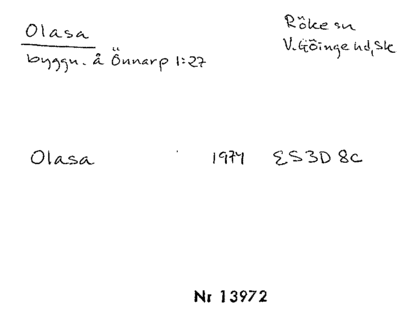 Olasa
Röke sn
V. Göinge hd, Sk
byggn. å Önnarp 1:27
Olasa 1974 ES3D 8c
Nr 13972